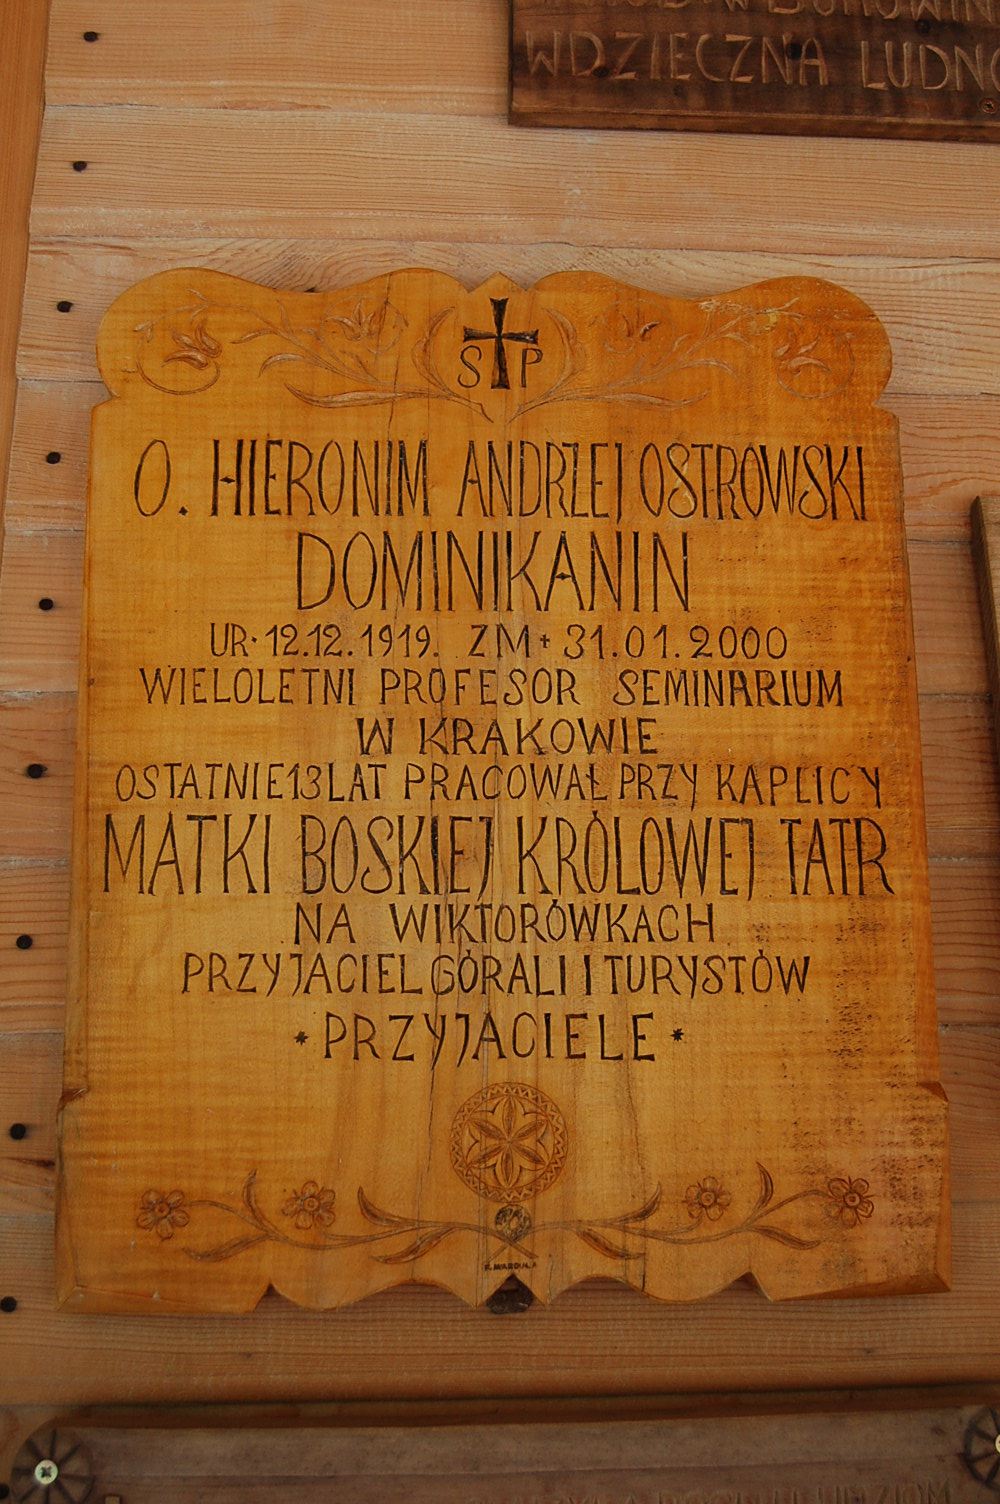 WDZIĘCZNA LUDN
S P
O. HIERONIM ANDRZEJ OSTROWSKI
DOMINIKANIN
UR. 12.12.1919. ZM + 31.01.2000
WIELOLETNI PROFESOR SEMINARIUM
W KRAKOWIE
OSTATNIE 13 LAT PRACOWAŁ PRZY KAPLICY
MATKI BOSKIEJ KRÓLOWEJ TATR
NA WIKTORÓWKACH
PRZYJACIEL GÓRALI I TURYSTÓW
* PRZYJACIELE *